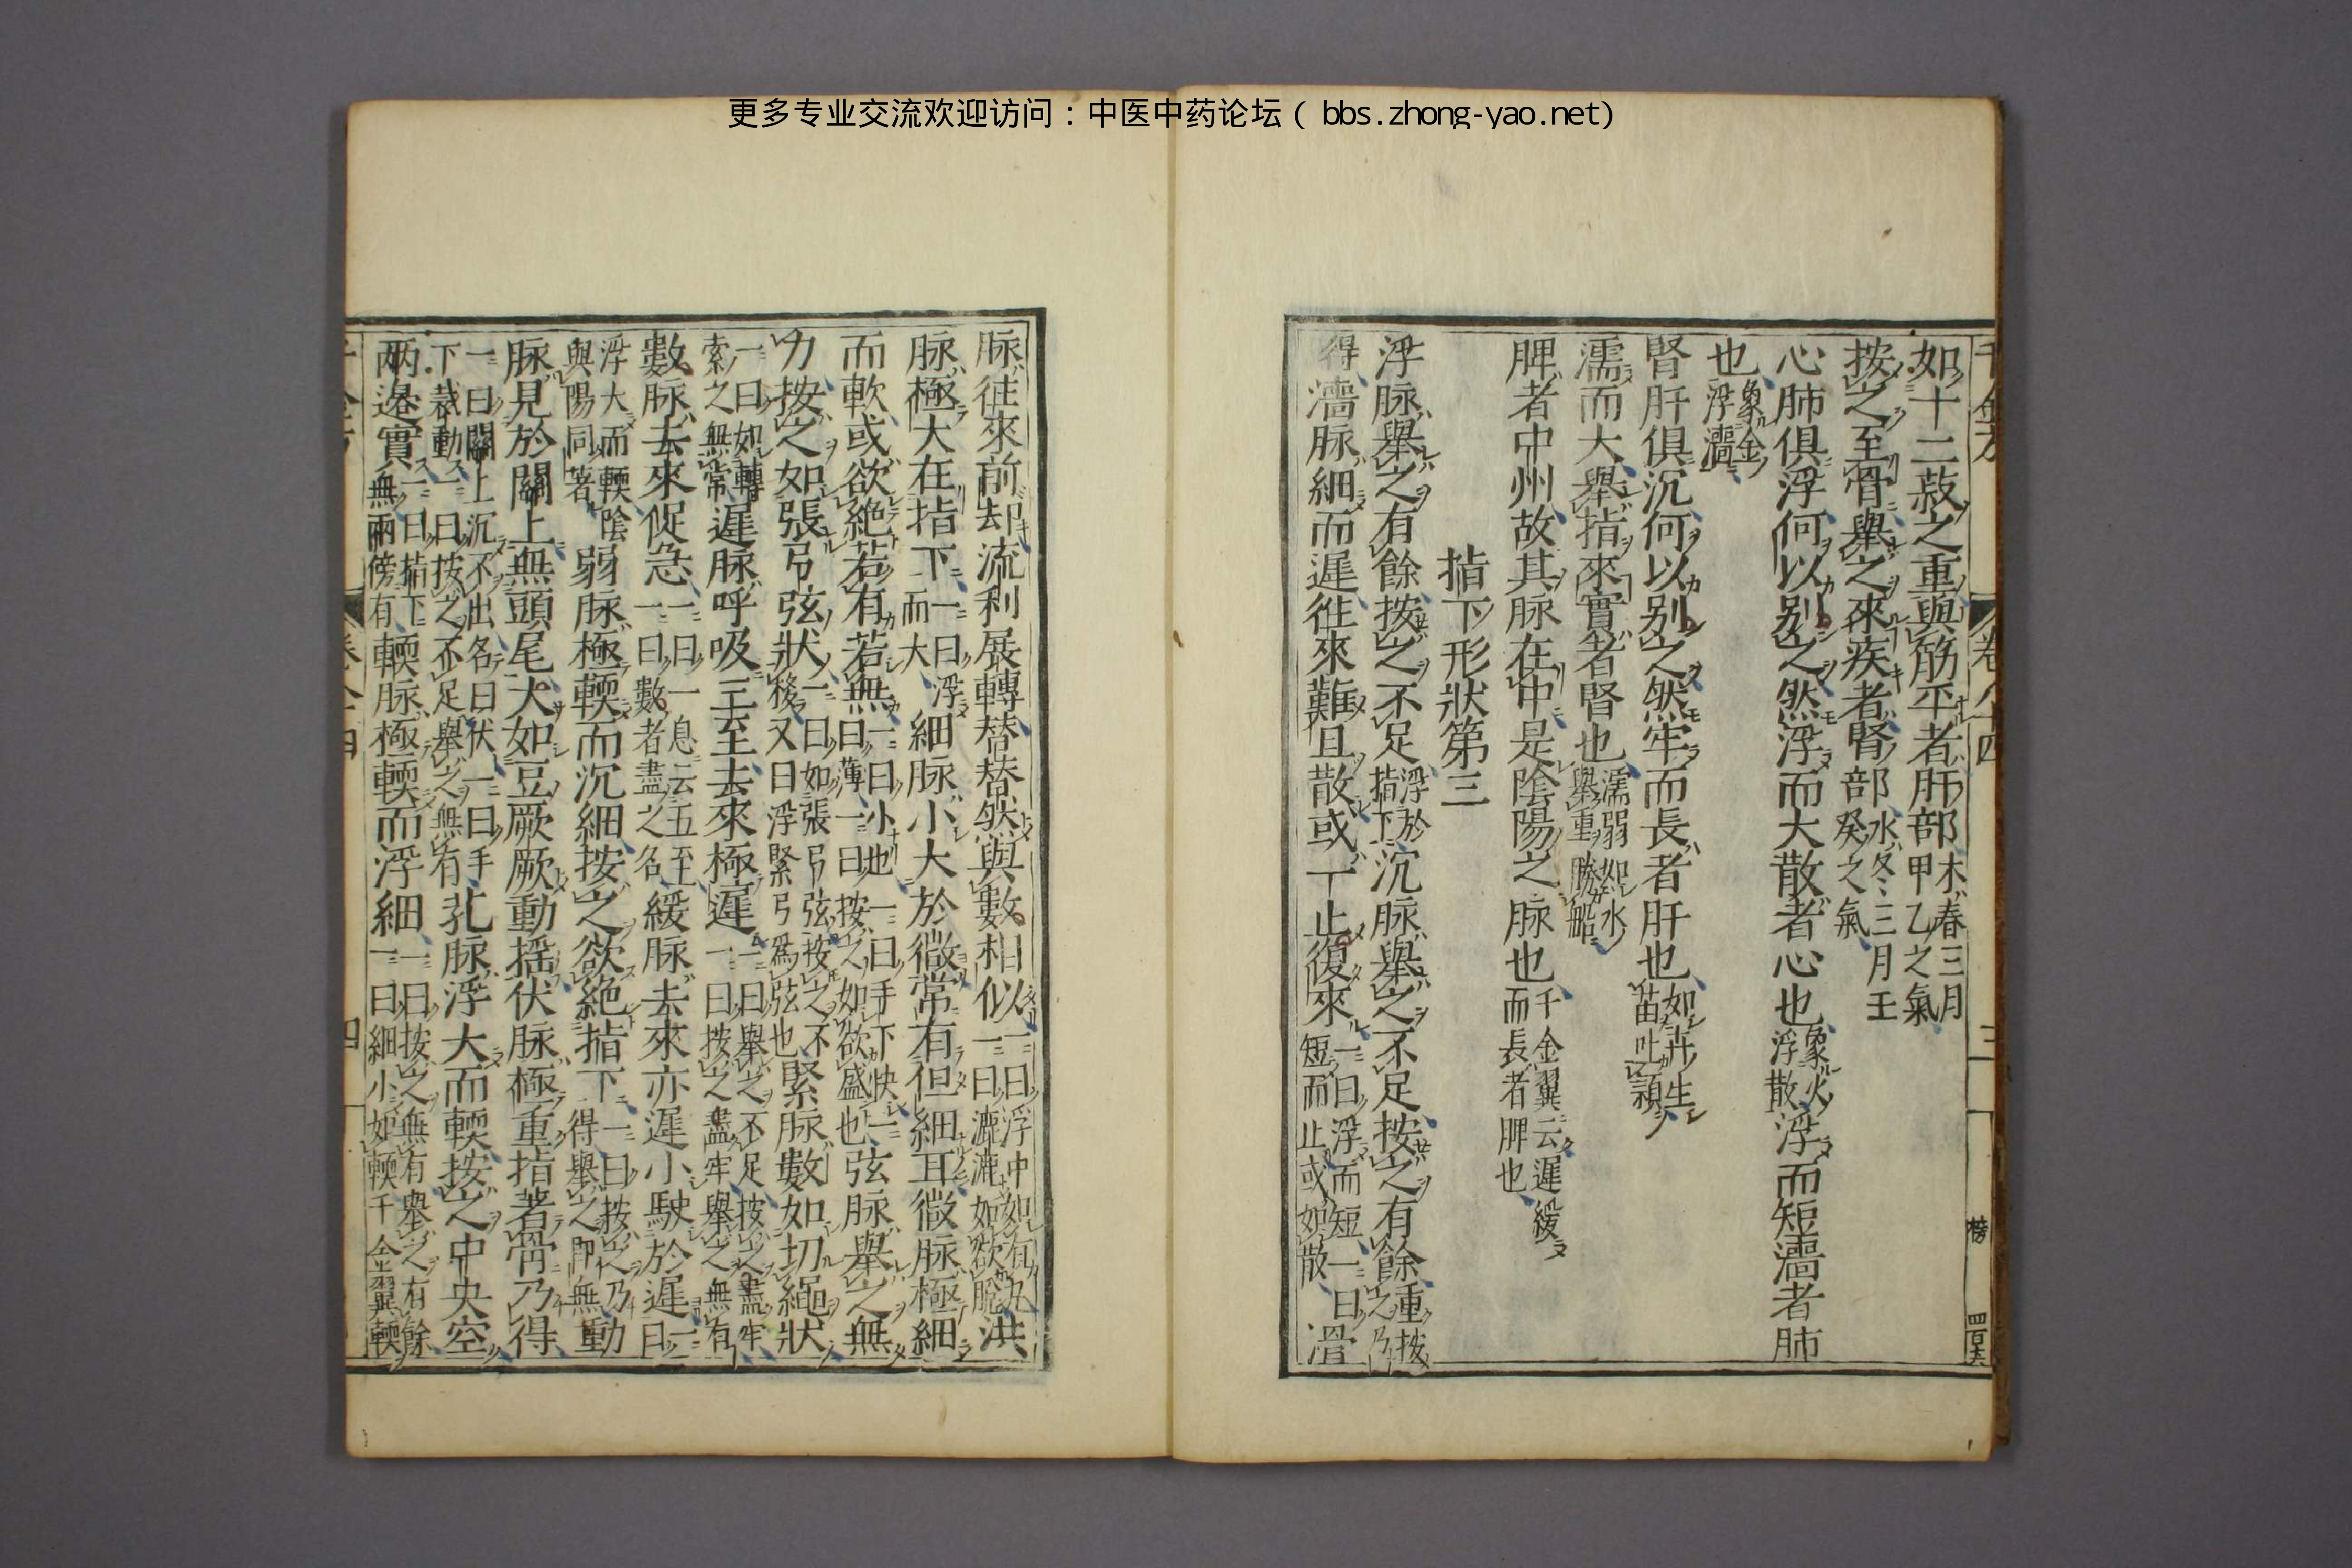 更多专业交流欢迎访问：中医中药论坛（ bbs.zhong-yao.net)
如十二菽之重與筋平者肝部木春三月甲乙之氣
按之至骨舉之來疾者腎部水冬三月王癸之氣
心肺俱浮何以别之然浮而大散者心也象火浮散浮而短濇者肺
也象金浮濇
腎肝俱沉何以别之然牢而長者肝也如卉生苗吐穎
濡而大舉指來實者腎也濡弱如水舉重勝船
脾者中州故其脉在中是陰陽之脉也千金翼云遲緩而長者脾也
指下形狀第三
浮脉舉之有餘按之不足浮於指下沉脉舉之不足按之有餘重按之乃
得濇脉細而遲徃來難且散或一止復來一曰浮而短一曰短而止或如散滑
脉徃來前却流利展轉替替然與數相似一曰浮中如有力一曰漉漉如欲脫洪
脉極大在指下一曰浮而大細脉小大於微常有但細耳微脉極細
而軟或欲絶若有若無一曰小也一曰手下快一曰薄一曰按之如欲盛也弦脉舉之無
力按之如張弓弦狀一曰如張弓弦按之不移又曰浮緊弓爲弦也緊脉數如切繩狀
一曰如轉索之無常遲脉呼吸三至去來極遲一曰舉之不足按之盡牢一曰按之盡牢舉之無有
數脉去來促急一曰一息云五至一曰數者盡之名緩脉去來亦遲小駛於遲一曰
浮大而輭陰與陽同著弱脉極輭而沉細按之欲絶指下一曰按之乃得舉之即無動
脉見於關上無頭尾大如豆厥厥動揺伏脉極重指著骨乃得
一曰關上沉不出名曰伏一曰手下裁動一曰按之不足舉之無有芤脉浮大而輭按之中央空
兩邊實一曰指下無兩傍有輭脉極輭而浮細一曰按之無有舉之有餘一曰細小如輭千金翼輭
千金方
卷八十四
三
四